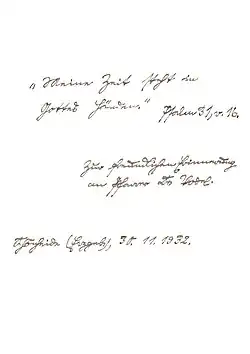 „Meine Zeit steht in
Gottes Händen.“ Psalm 31, v. 16.
Zur freundlichen Erinnerung
an Pfarrer
(Lippe), 30. 11. 1932.